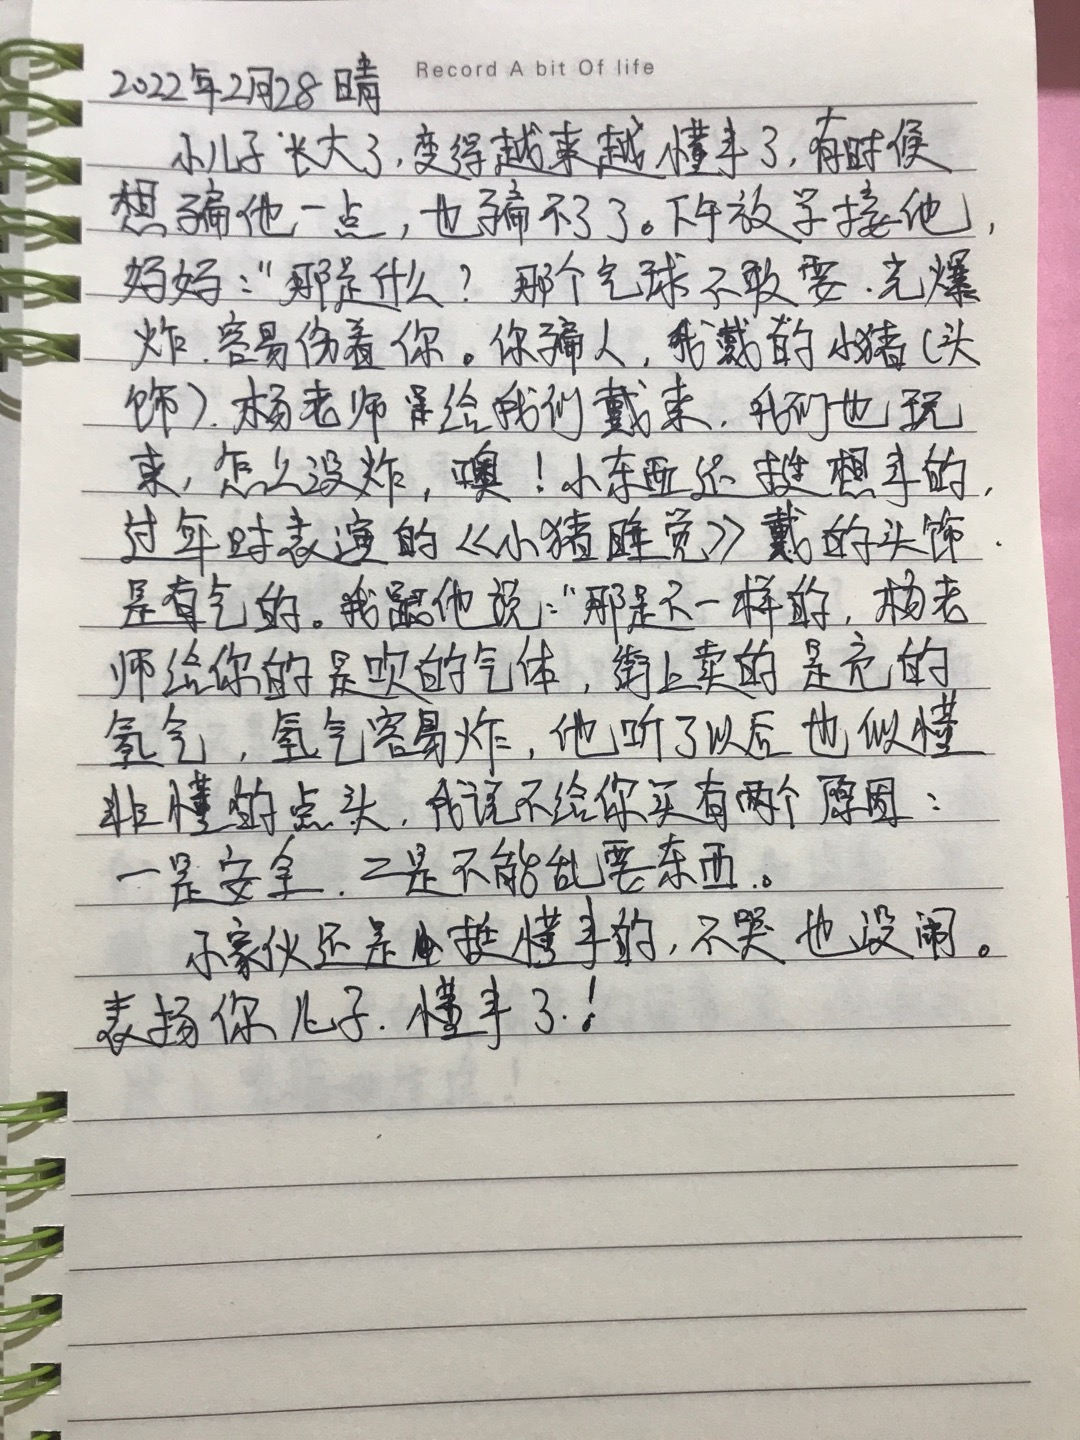 Record A bit Of life
2022年2月28 晴
小儿子长大了,变得越来越懂事了,有时候
想骗他一点,也骗不了了。下午放学接他,
妈妈:"那是什么?那个气球不敢要.光爆
炸.容易伤着你。你骗人,我戴的小猪(头
饰).杨老师给我们戴来,我们也玩
来,怎么没炸,噢!小东西还挺想事的,
过年时表演的《小猪睡觉》戴的头饰.
是有气的。我跟他说:"那是不一样的,杨老
师给你的是吹的气体,街上卖的是充的
氢气,氢气容易炸,他听了以后也似懂
非懂的点头,我说不给你买有两个原因:
一是安全.二是不能乱要东西.。
小家伙还是挺懂事的,不哭也没闹。
表扬你儿子.懂事了.!